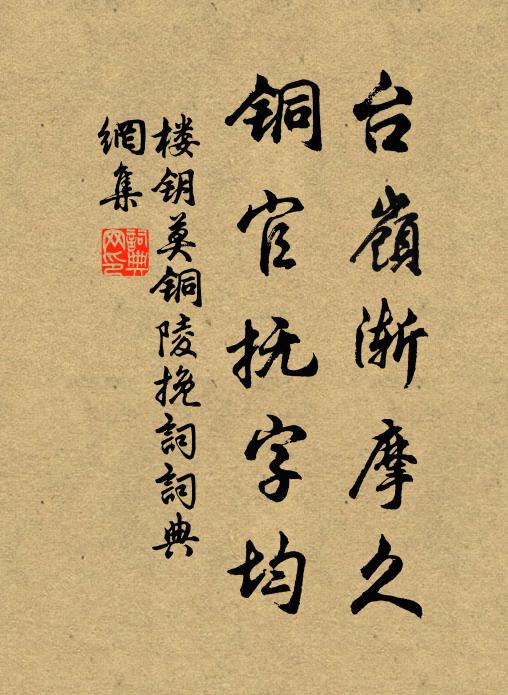 台嶺渐摩久
铜官抚字均
楼钥莫铜陵挽詞詞典
網集
詞典
网印